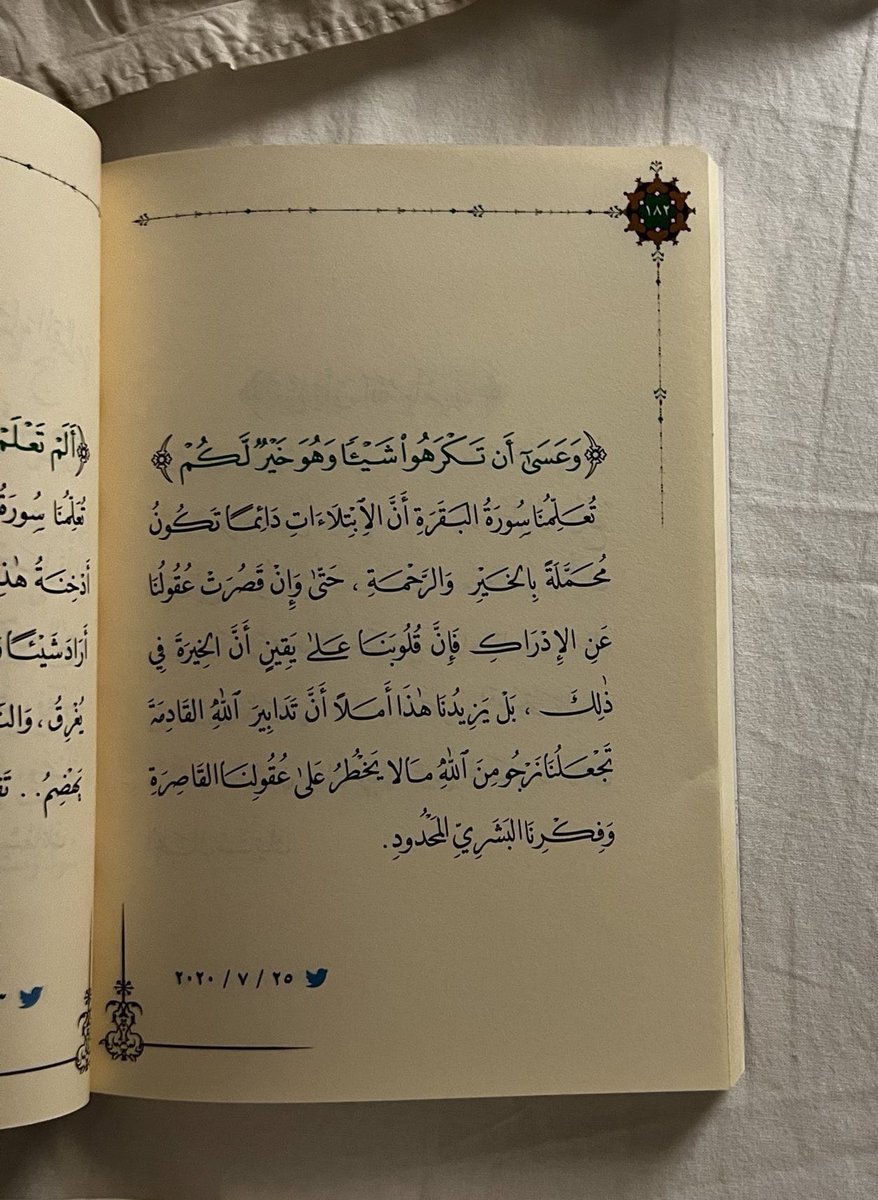 ١٨٢
﴿وَعَسَىٰٓ أَن تَكْرَهُوا۟ شَيْـًٔا وَهُوَ خَيْرٌ لَّكُمْ﴾
تُعَلِّمُنَا سُورَةُ البَقَرَةِ أَنَّ الِابْتِلَاءَاتِ دَائِمًا تَكُونُ
مُحَمَّلَةً بِالخَيْرِ وَالرَّحْمَةِ ، حَتَّىٰ وَإِنْ قَصُرَتْ عُقُولُنَا
عَنِ الإِدْرَاكِ فَإِنَّ قُلُوبَنَا عَلَىٰ يَقِينٍ أَنَّ الخِيرَةَ فِي
ذٰلِكَ ، بَلْ يَزِيدُنَا هٰذَا أَمَلًا أَنَّ تَدَابِيرَ ٱللَّهِ القَادِمَةَ
تَجْعَلُنَا نَرْجُو مِنَ ٱللَّهِ مَالَا يَخْطُرُ عَلَىٰ عُقُولِنَا القَاصِرَةِ
وَفِكْرِنَا البَشَرِيِّ المَحْدُودِ.
٢٥ / ٧ / ٢٠٢٠
﴿أَلَمْ تَعْلَمْ
تُعَلِّمُنَا سُورَةُ
أَدْخِنَةُ
أَرَادَ شَيْئًا
يُغْرِقُ ،
يَهْضِمُ..